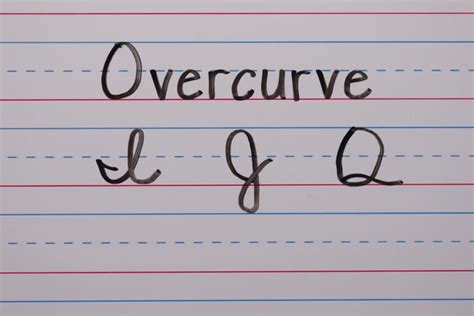 Overcurve
I J Q